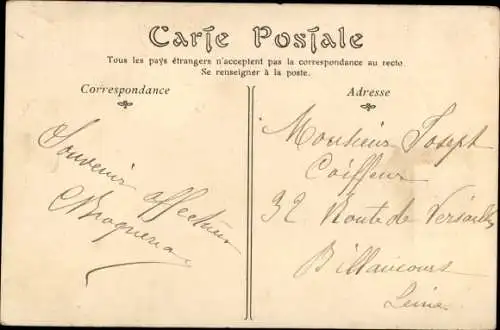 Carte Postale
Tous les pays étrangers n'acceptent pas la correspondance au recto.
Se renseigner à la poste.
Correspondance
Adresse
Souvenir affectueux
Monsieur Joseph
Coiffeur
32 Route de Versailles
Billancourt
Seine